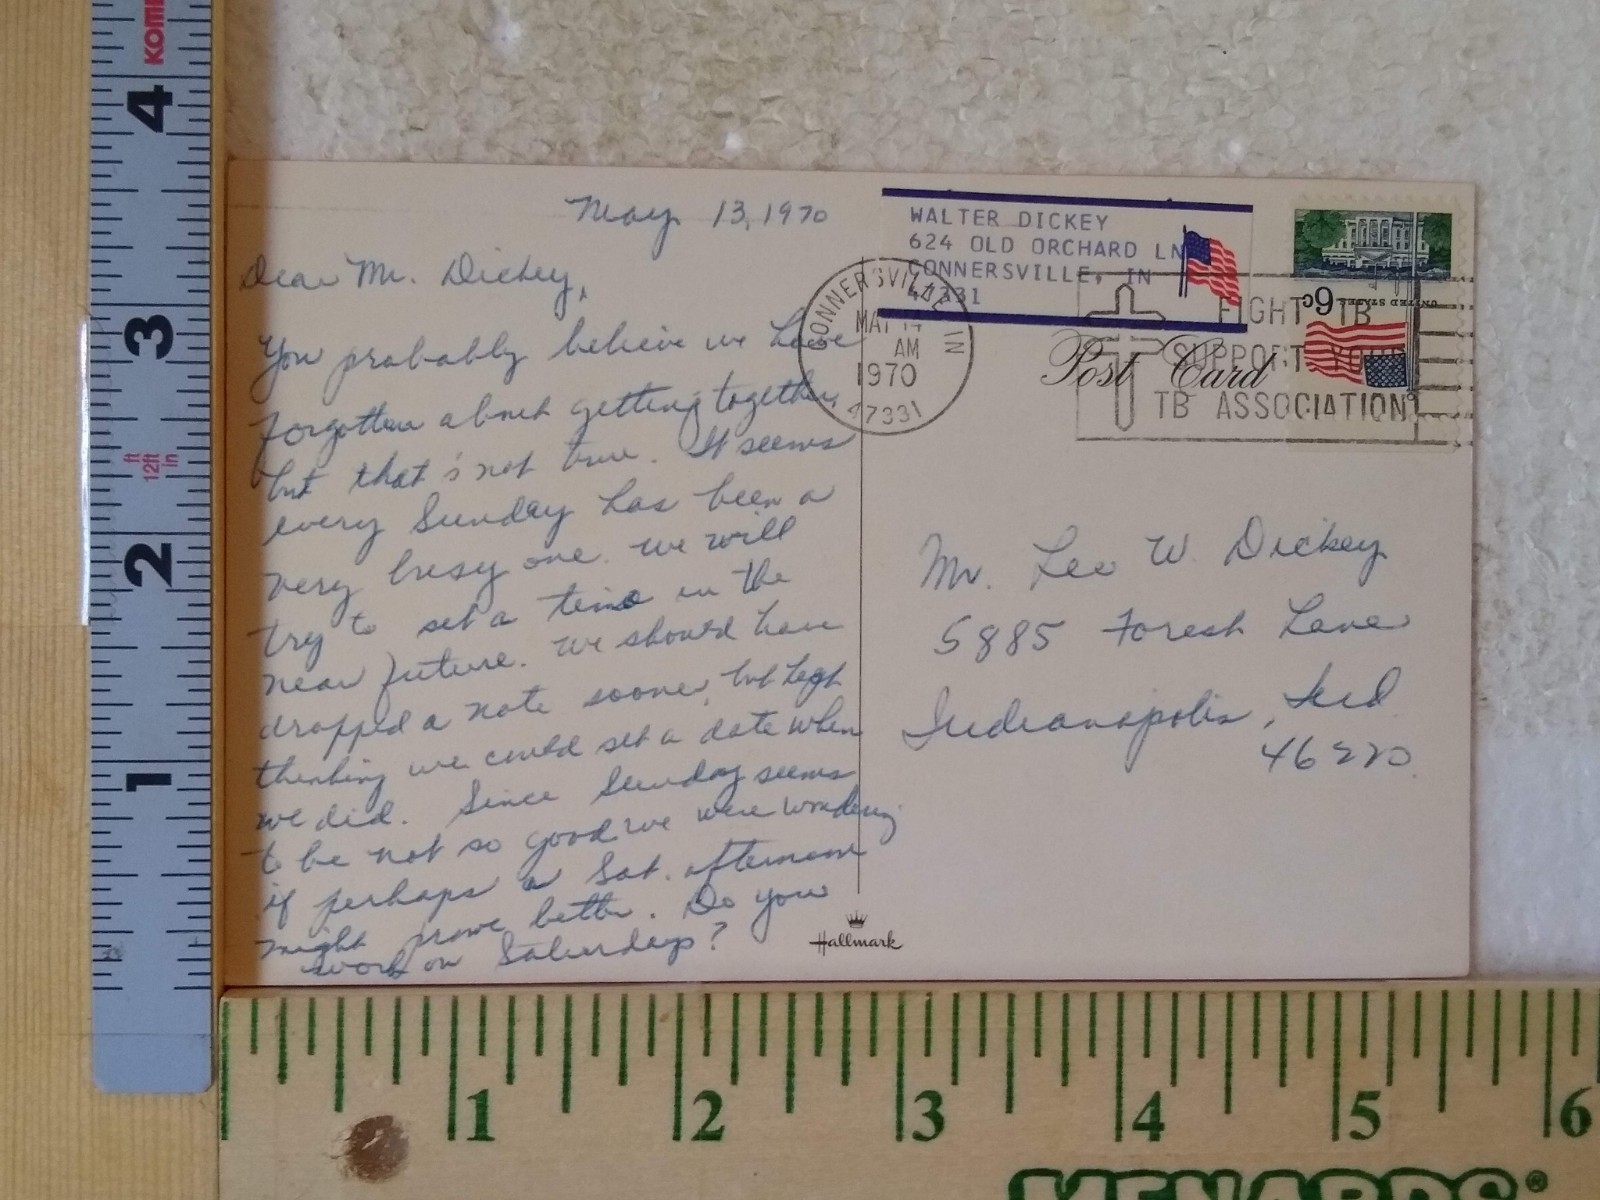 KOME
4
3
ft
12ft
in
2
1
May 13, 1970
Dear Mr. Dickey,
You probably believe we have
forgotten about getting together,
but that's not true. It seems
every Sunday has been a
very busy one. We will
try to set a time in the
near future. We should have
dropped a note sooner, but kept
thinking we could set a date when
we did. Since Sunday seems
to be not so good we were wondering
if perhaps a Sat. afternoon
might prove better. Do you
work on Saturdays?
WALTER DICKEY
624 OLD ORCHARD LN
CONNERSVILLE, IN
47331
CONNERSVILLE IN
MAY 14
AM
1970
47331
UNITED STATES 6c
FIGHT TB
SUPPORT YOUR
TB ASSOCIATION
Post Card
Mr. Leo W. Dickey
5885 Forest Lane
Indianapolis, Ind
46220
Hallmark
1 2 3 4 5 6
MENARDS®